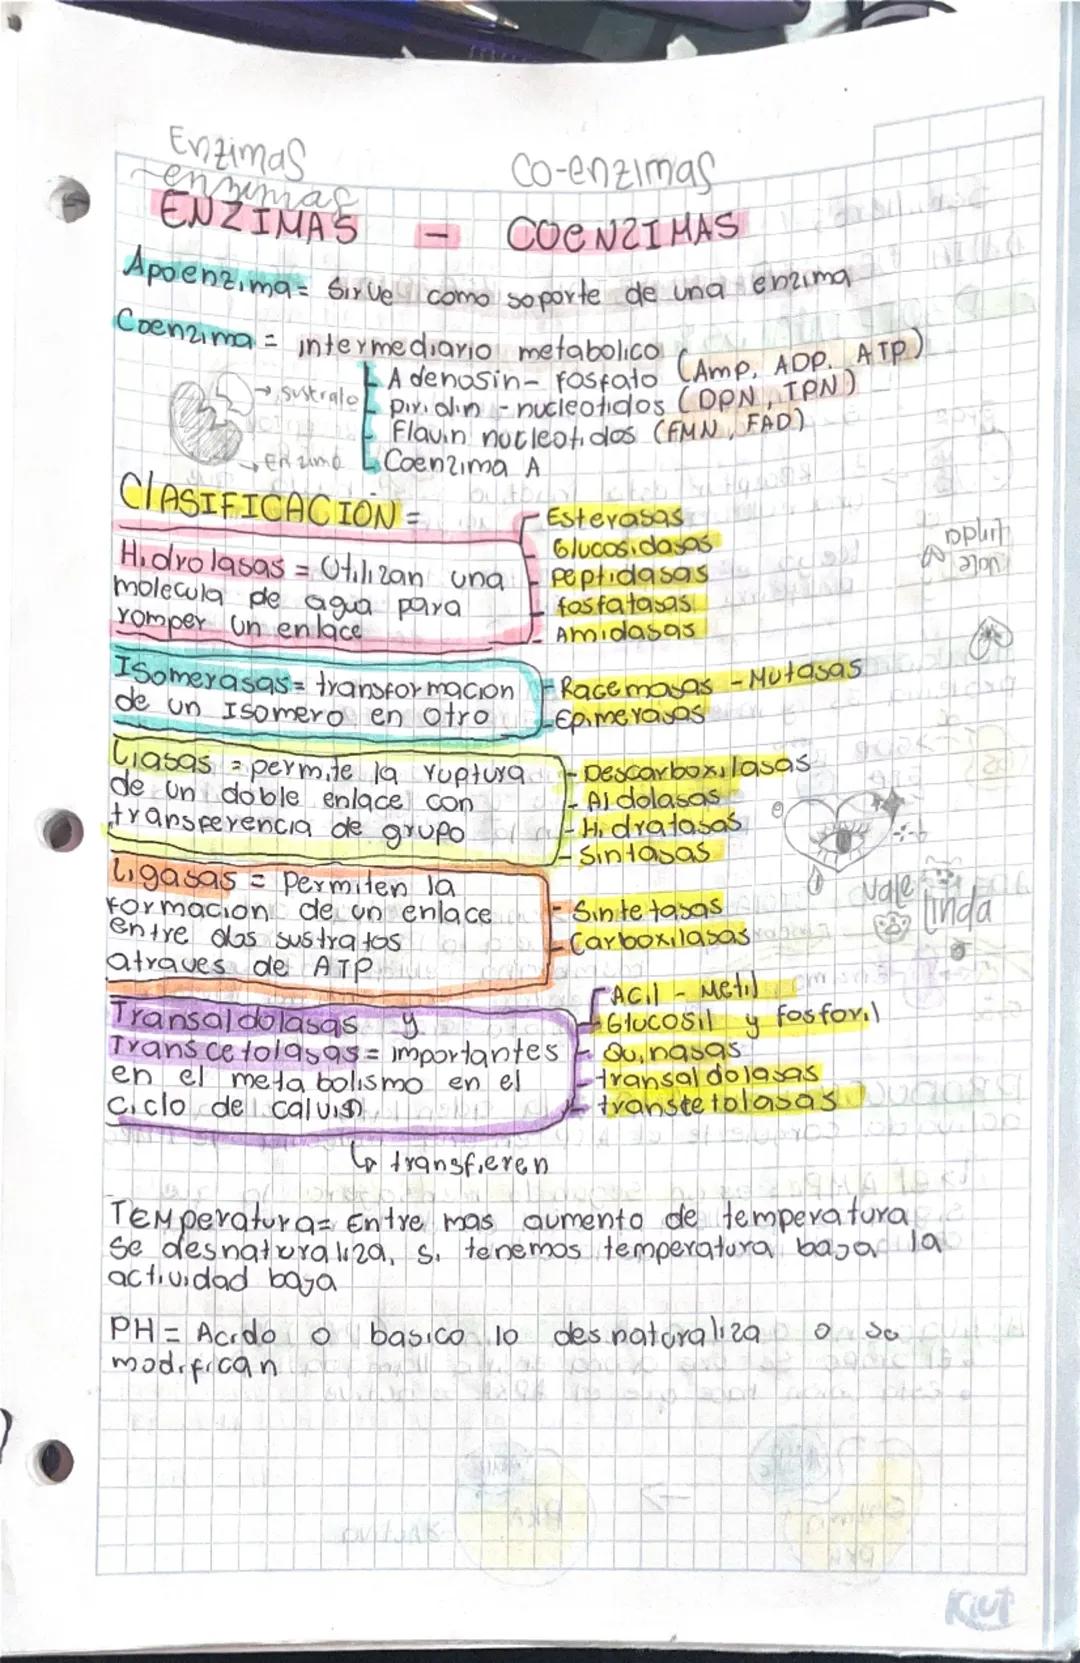 Enzimas Co-enzimas
enzimas
ENZIMAS - COENZIMAS
Apoenzima = Sirve como soporte de una enzima
Coenzima = intermediario metabolico
Adenosin - fosfato (Amp, ADP, ATP)
piridin - nucleotidos (DPN, TPN)
Flavin nucleotidos (FMN, FAD)
Coenzima A
→ sustrato
→ Enzima
ClASIFICACIÓN =
Hidrolasas = Utilizan una
molecula de agua para
romper un enlace
Esterasas
Glucosidasas
peptidasas
fosfatasas
Amidasas
ISomerasas = transformacion
de un Isomero en otro
Racemasas - Mutasas
Epimerasas
Liasas = permite la ruptura
de un doble enlace con
transferencia de grupo
- Descarboxilasas
- Aldolasas
- Hidratasas
- Sintasas
Ligasas = permiten la
formacion de un enlace
entre dos sustratos
atraves de ATP
- Sintetasas
- Carboxilasas
vale
linda
Transaldolasas y
Transcetolasas = importantes
en el metabolismo en el
ciclo de calvin
ACil - Metil
Glucosil y fosforil
Quinasas
transaldolasas
transcetolasas
↳ transfieren
TEMperatura = Entre mas aumento de temperatura
se desnaturaliza, si tenemos temperatura baja la
actividad baja
PH = Acido o basico lo desnaturaliza o se
modifican
Kiut